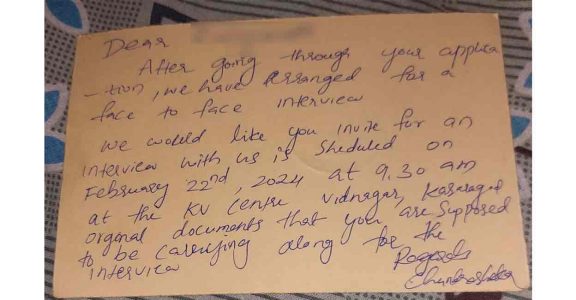 Dear
After going through your applica
-tion, we have arranged for a
face to face interview
We would like you invite for an
interview with us is sheduled on
February 22nd, 2024 at 9.30 am
at the KV Centre Vidnagar, Kasaragod
orginal documents that you are supposed
to be carrying along for the
interview
Chandrashekar